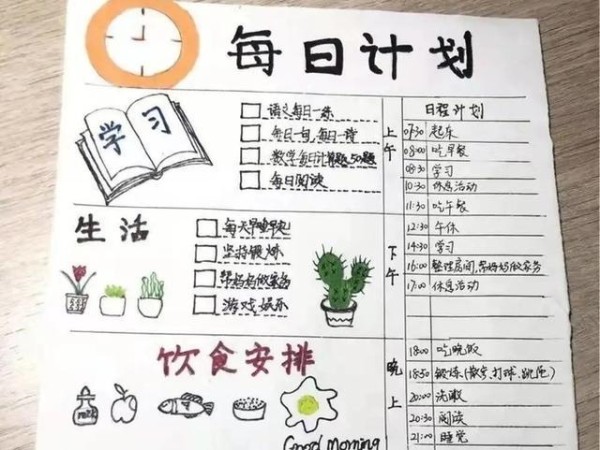 每日计划
学习
语文每日一练
每日一句,每日一诗
数学每日计算题50题
每日阅读
生活
每天早睡早起
坚持锻炼
帮妈妈做家务
游戏娱乐
饮食安排
milk
Good morning
日程计划
上午
07:30 起床
08:00 吃早餐
08:30 学习
10:30 休息活动
11:30 吃午餐
下午
12:30 午休
14:30 学习
16:00 整理房间,帮妈妈做家务
17:00 休息活动
晚上
18:00 吃晚饭
18:50 锻炼(散步,打球,跳绳)
20:00 洗漱
20:30 阅读
21:00 睡觉